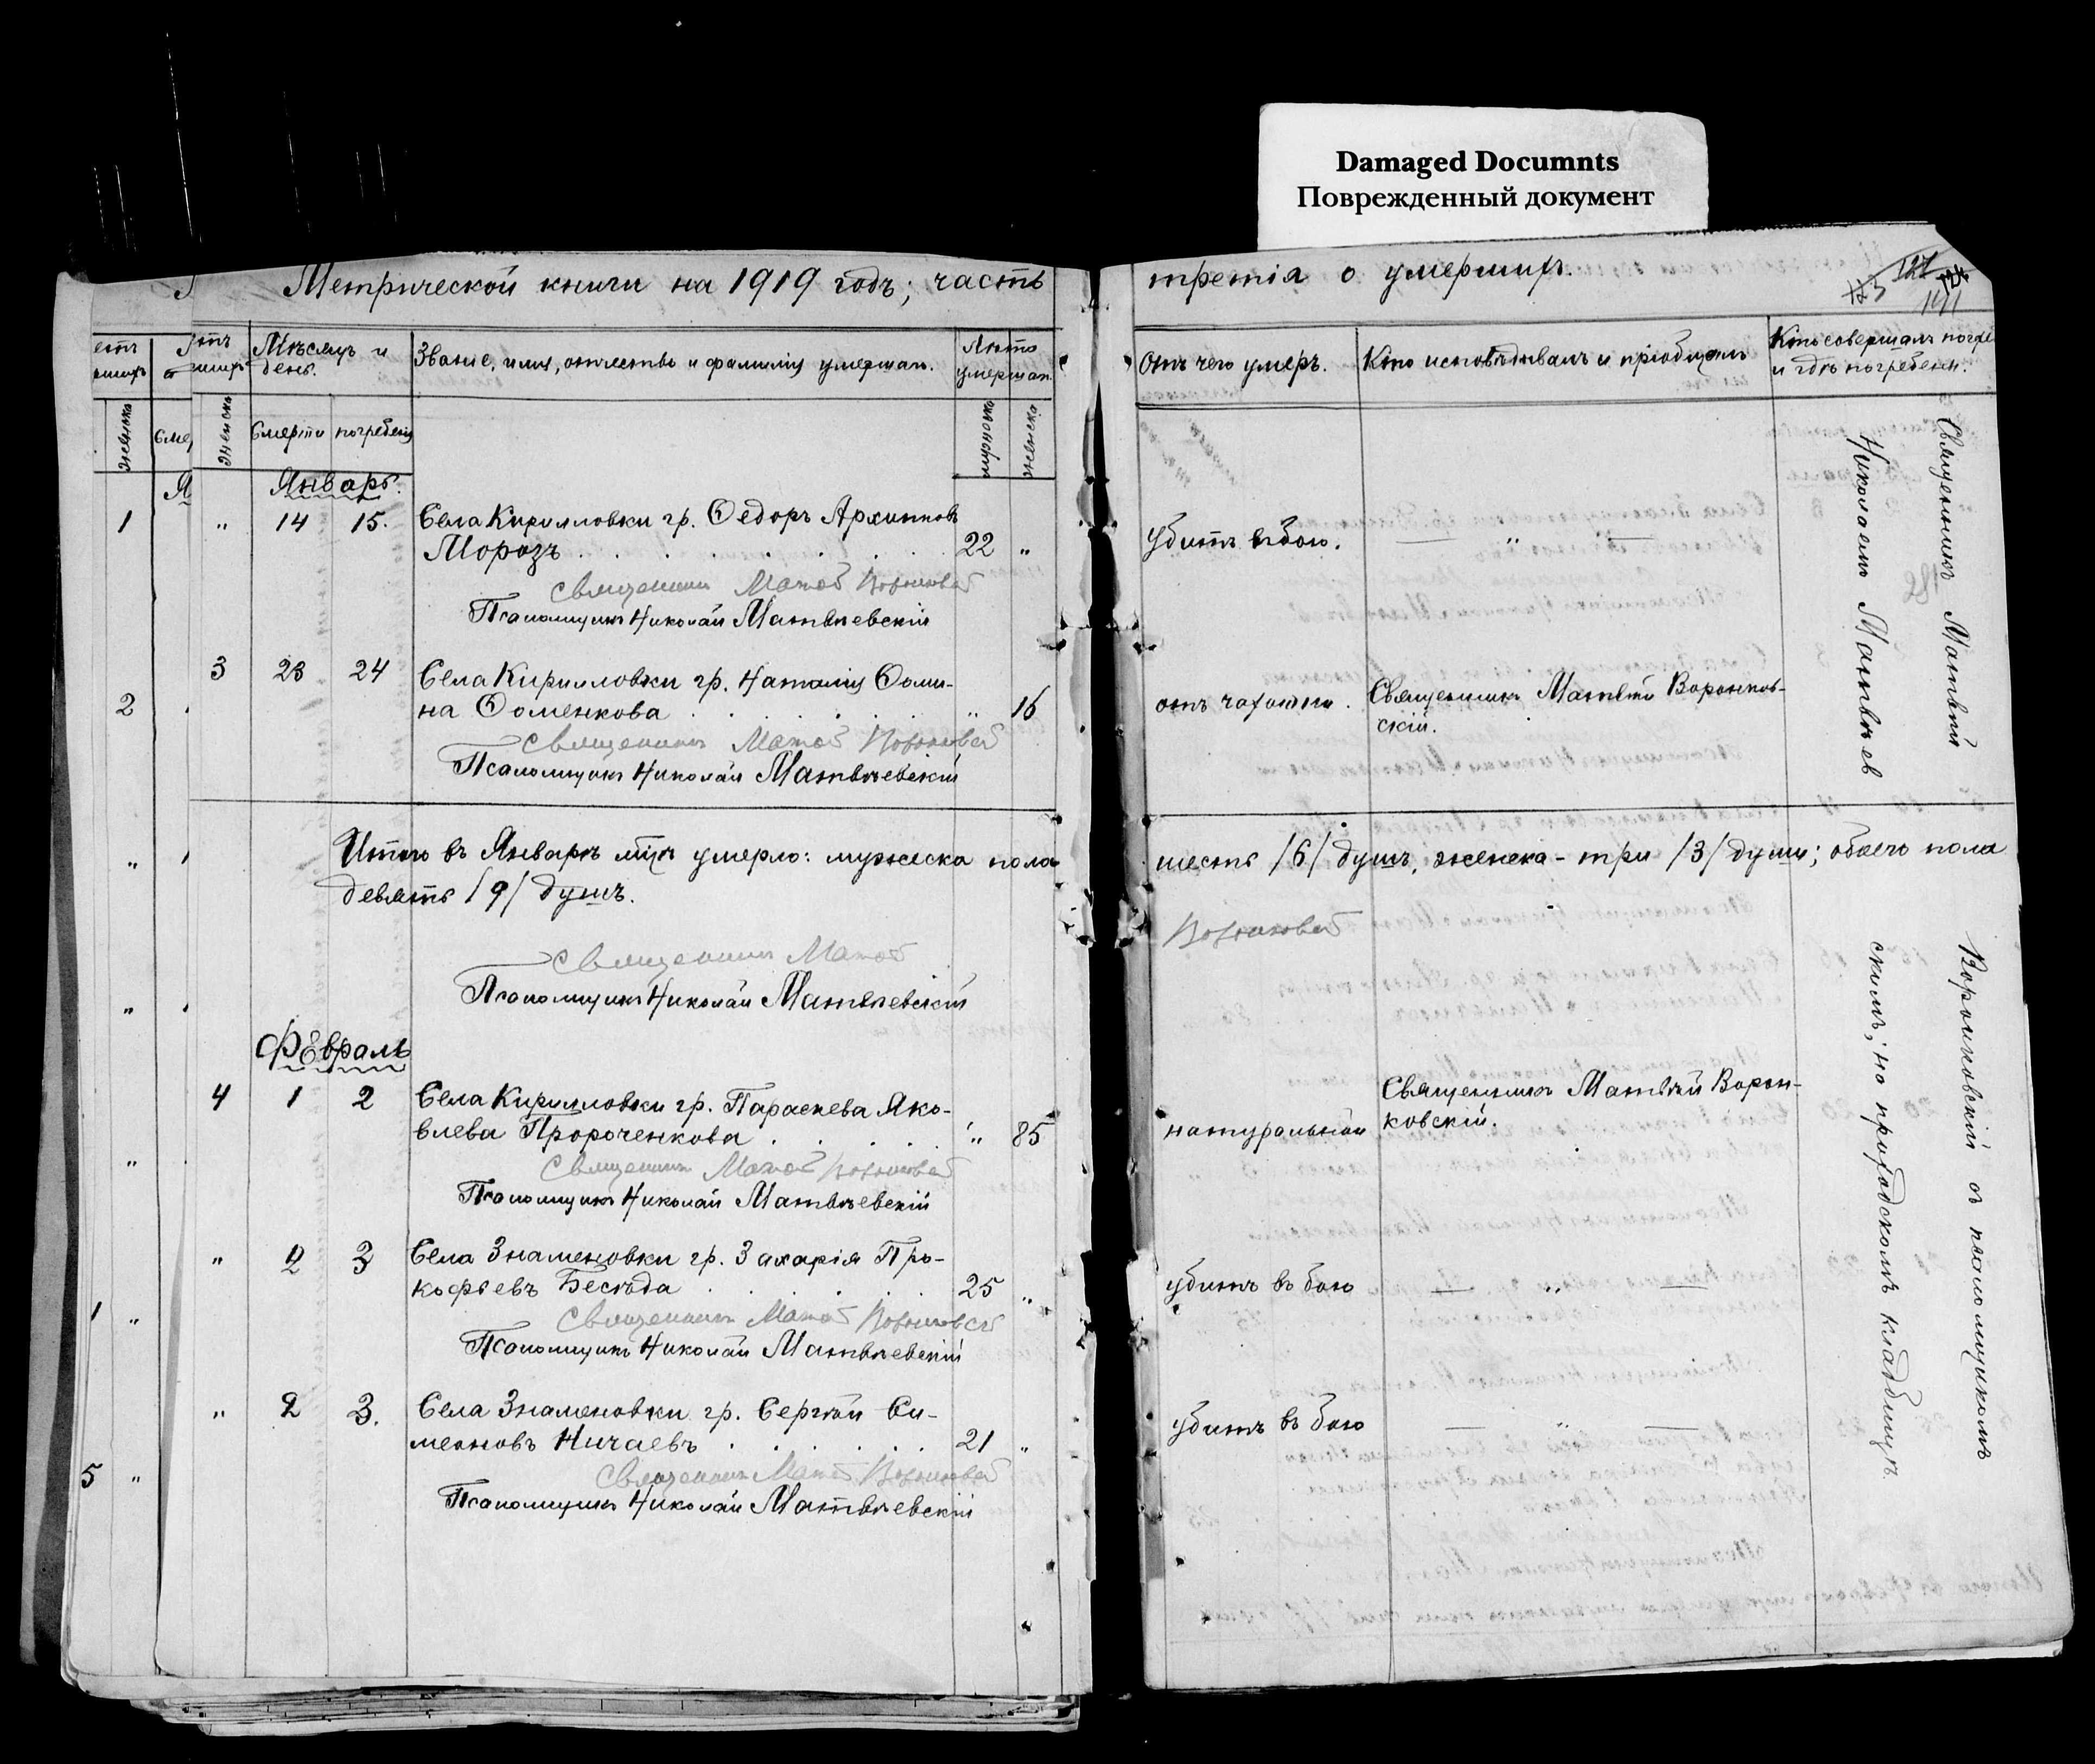 Damaged Documnts
Поврежденный документ
Метрической книги на 1919 годъ; часть
третія о умершихъ.
123 124
Мѣсяцъ и
день.
Званіе, имя, отчество и фамилія умершаго.
Лѣто
умершаго.
женска
женска
Смерти
погребенія
мужеска
женска
Отъ чего умеръ.
Кто исповѣдывалъ и пріобщалъ
Кто совершалъ погре
и гдѣ погребенъ.
Январь.
1 " 14 15. Села Кирилловки гр. Ѳедоръ Архиповъ
Морозъ 22 " убитъ въ бою. — " —
Священникъ Матѳей Воронковскій
Псаломщикъ Николай Матвѣевскій
3 23 24 Села Кирилловки гр. Наталія Ѳоми-
на Ѳоменкова " 16 отъ чахотки. Священникъ Матвѣй Воронков-
скій.
2
Священникъ Матѳей Воронковскій
Псаломщикъ Николай Матвѣевскій
Итого въ Январѣ м-цѣ умерло: мужеска пола
шесть /6/ душъ, женска - три /3/ души; обоего пола
девять /9/ душъ.
Священникъ Матѳей
Воронковскій
Псаломщикъ Николай Матвѣевскій
Февраль
4 1 2 Села Кирилловки гр. Параскева Яко-
влева Пророченкова " 85 натуральной Священникъ Матвѣй Ворон-
ковскій.
Священникъ Матѳей Воронковскій
Псаломщикъ Николай Матвѣевскій
" 2 3 Села Знаменовки гр. Захарія Про-
кофьевъ Бесѣда 25 " убитъ въ бою — " —
1 "
Священникъ Матѳей Воронковскій
Псаломщикъ Николай Матвѣевскій
" 2 3. Села Знаменовки гр. Сергѣй Си-
меоновъ Ничаевъ 21 " убитъ въ бою — " —
5 "
Священникъ Матѳей Воронковскій
Псаломщикъ Николай Матвѣевскій
Священникъ Матвѣй Воронковскій съ псаломщикомъ
Николаемъ Матвѣевскимъ; на приходскомъ кладбищѣ.